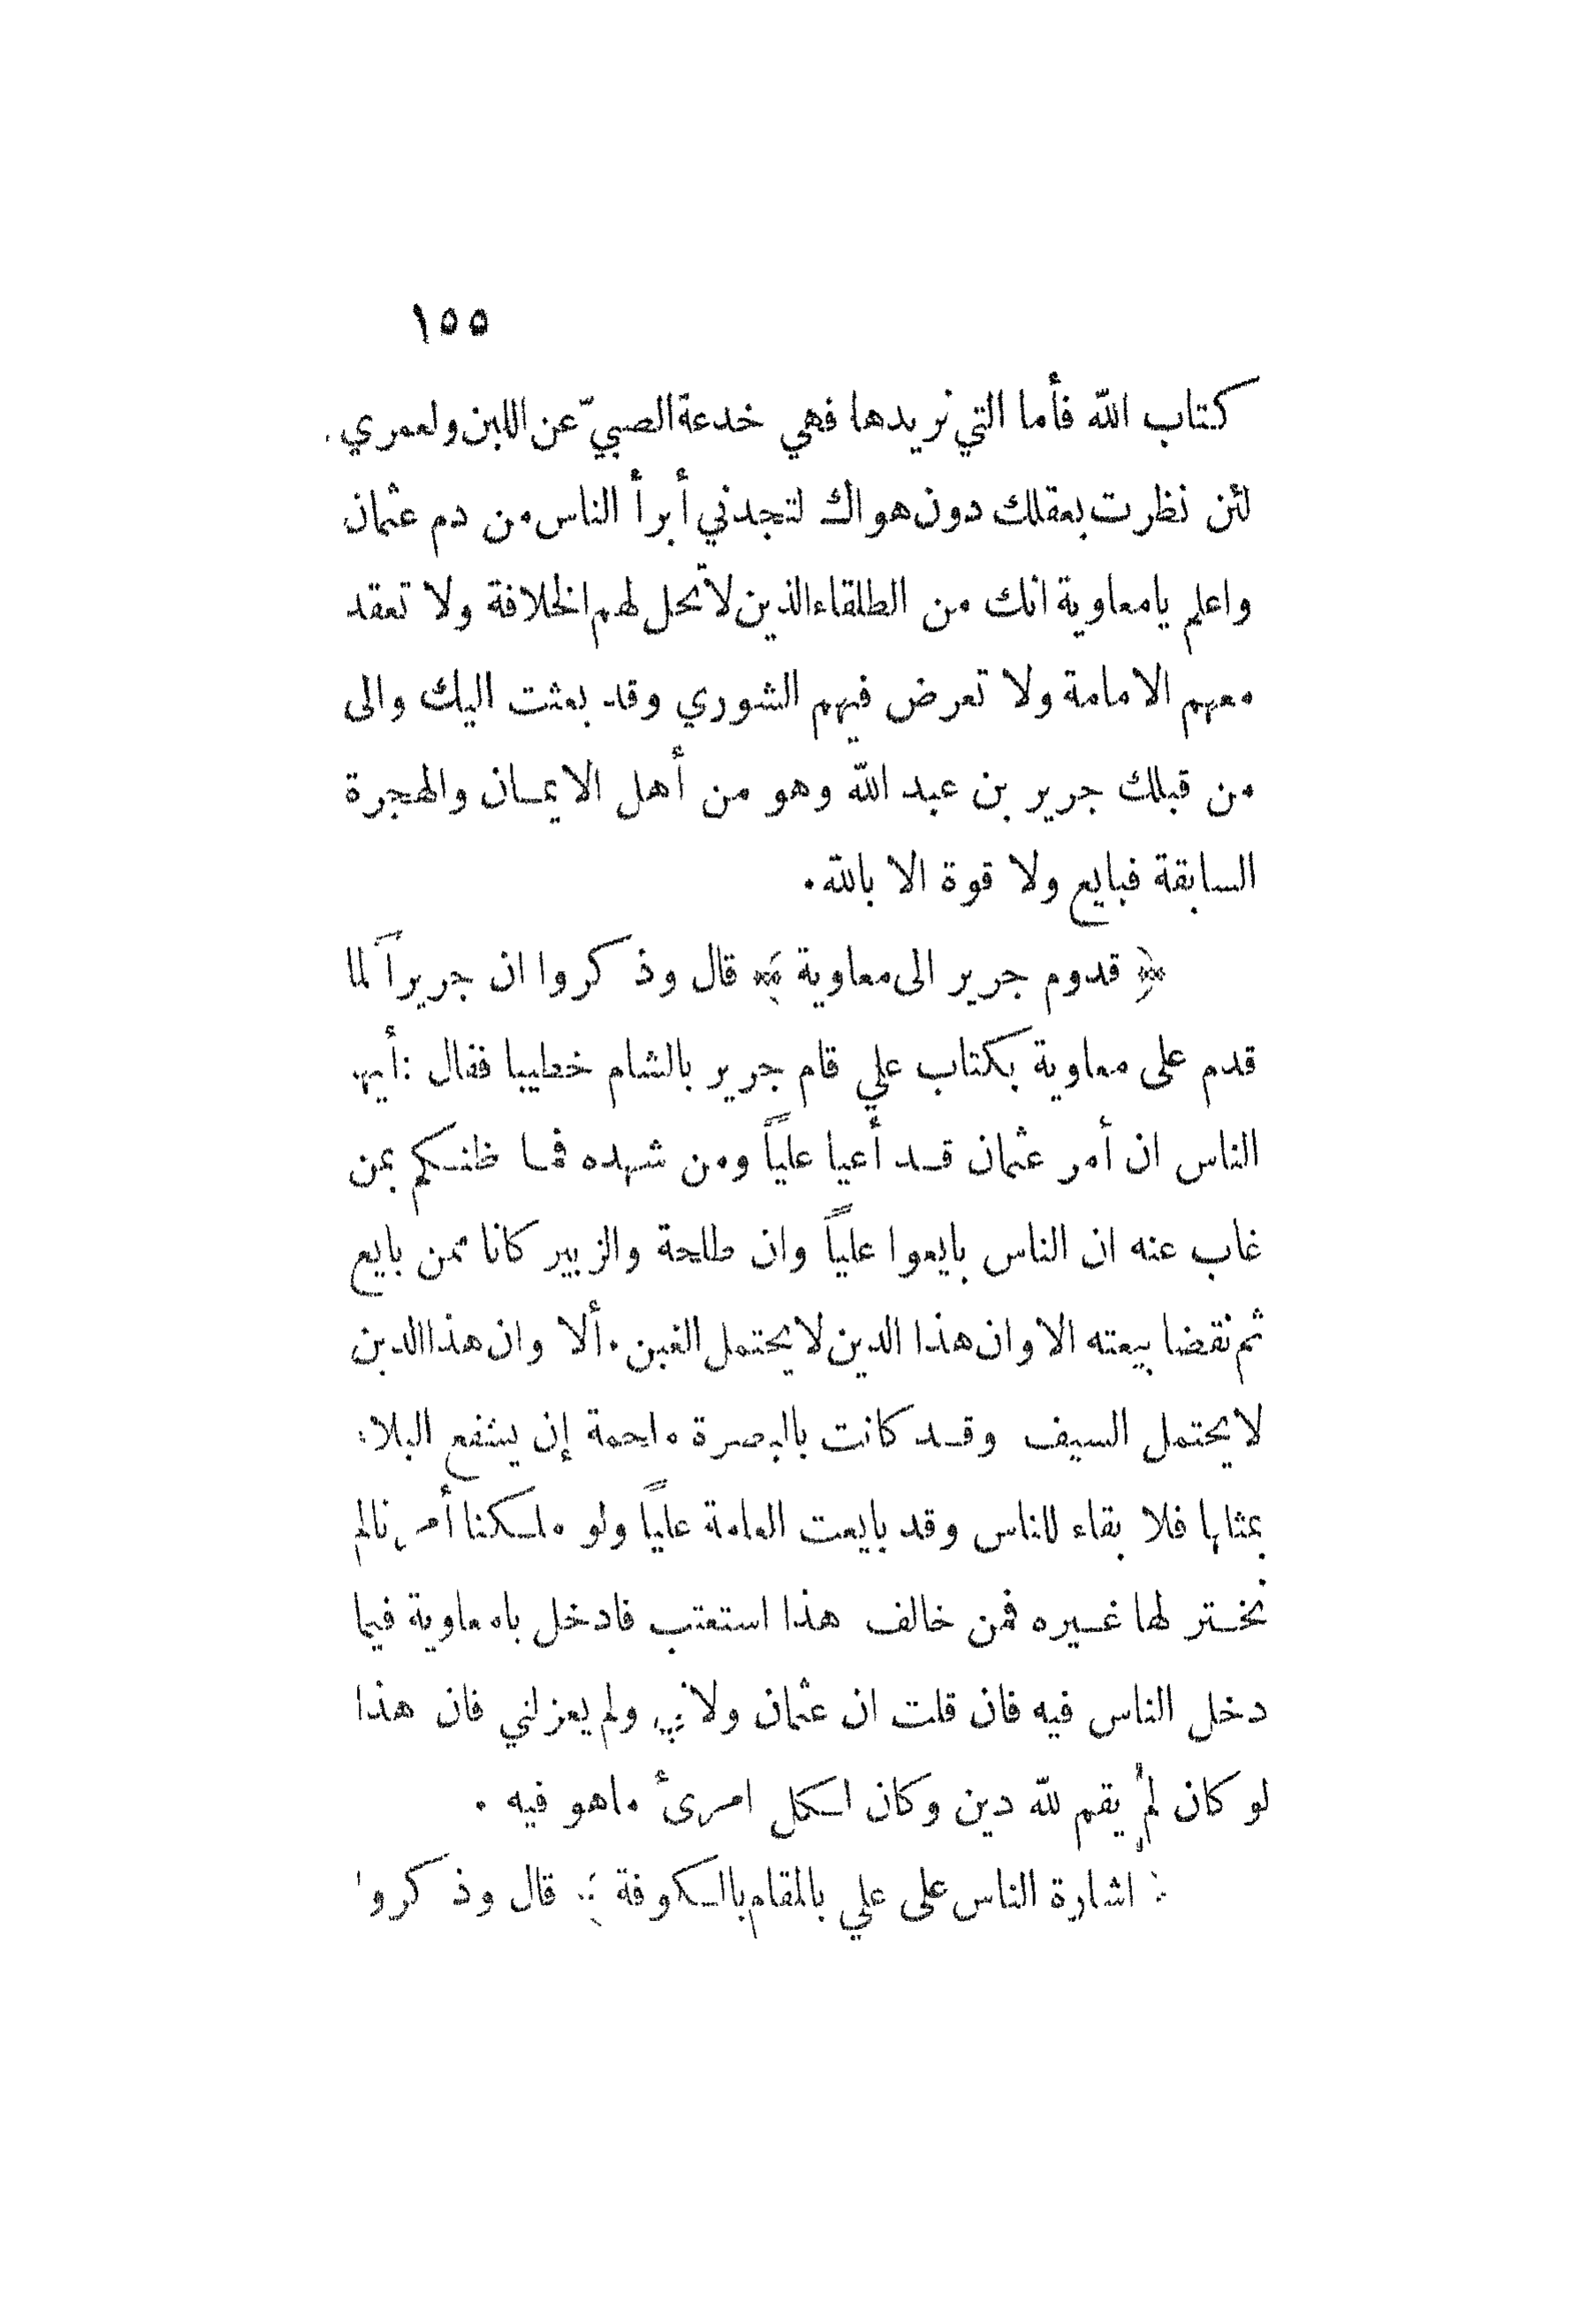 ١٥٥
كتاب الله فأما التي نريدها فهي خدعة الصبيّ عن اللبن ولعمري
لئن نظرت بعقلك دون هواك لتجدني أبرأ الناس من دم عثمان
واعلم يا معاوية انك من الطلقاء الذين لا تحل لهم الخلافة ولا تعقد
معهم الامامة ولا تعرض فيهم الشوري وقد بعثت اليك والى
من قبلك جرير بن عبد الله وهو من أهل الايمان والهجرة
السابقة فبايع ولا قوة الا بالله.
﴿ قدوم جرير الى معاوية ﴾ قال وذكروا ان جريراً لما
قدم على معاوية بكتاب علي قام جرير بالشام خطيبا فقال : أيها
الناس ان أمر عثمان قد أعيا علياً ومن شهده فما ظنكم بمن
غاب عنه ان الناس بايعوا علياً وان طلحة والزبير كانا ممن بايع
ثم نقضا بيعته الا وان هذا الدين لا يحتمل الفبن . ألا وان هذا الدين
لا يحتمل السيف وقد كانت بالبصرة ملحمة إن يشفع البلاء
بمثلها فلا بقاء للناس وقد بايعت العامة علياً ولو ملكنا أمرنا لم
نختر لها غيره فمن خالف هذا استعتب فادخل يا معاوية فيما
دخل الناس فيه فان قلت ان عثمان ولاني ولم يعزلني فان هذا
لو كان لم يقم لله دين وكان لكل امرئ ما هو فيه .
﴿ اشارة الناس على علي بالمقام بالكوفة ﴾ قال وذكروا